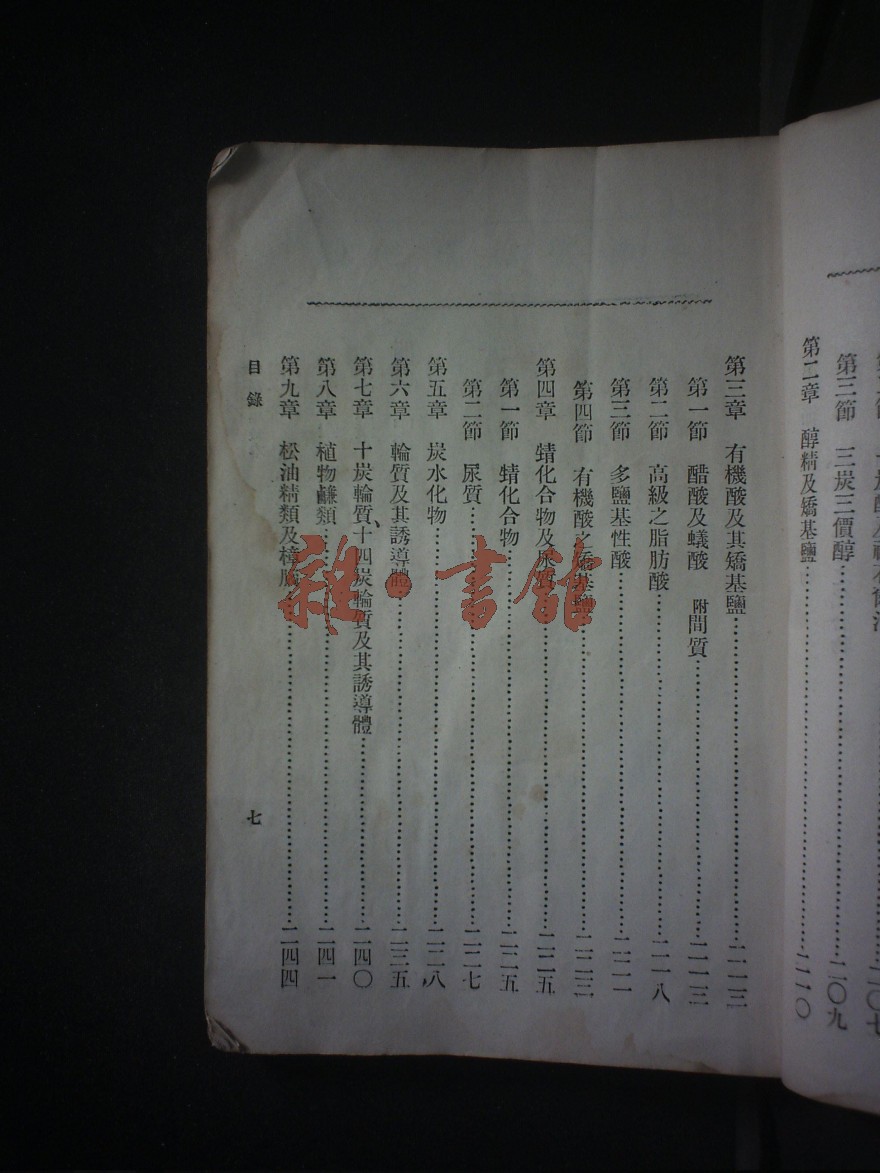 第三節 三炭三價醇……二〇九
第二章 醇精及矯基鹽……二一〇
第三章 有機酸及其矯基鹽……二一三
第一節 醋酸及蟻酸 附間質……二一三
第二節 高級之脂肪酸……二一八
第三節 多鹽基性酸……二二一
第四節 有機酸之矯基鹽……二二三
第四章 蜻化合物及尿質……二二五
第一節 蜻化合物……二二五
第二節 尿質……二二七
第五章 炭水化物……二二八
第六章 輪質及其誘導體……二三五
第七章 十炭輪質、十四炭輪質及其誘導體……二四〇
第八章 植物鹼類……二四一
第九章 松油精類及樟腦……二四四
目錄
七
雜·書館